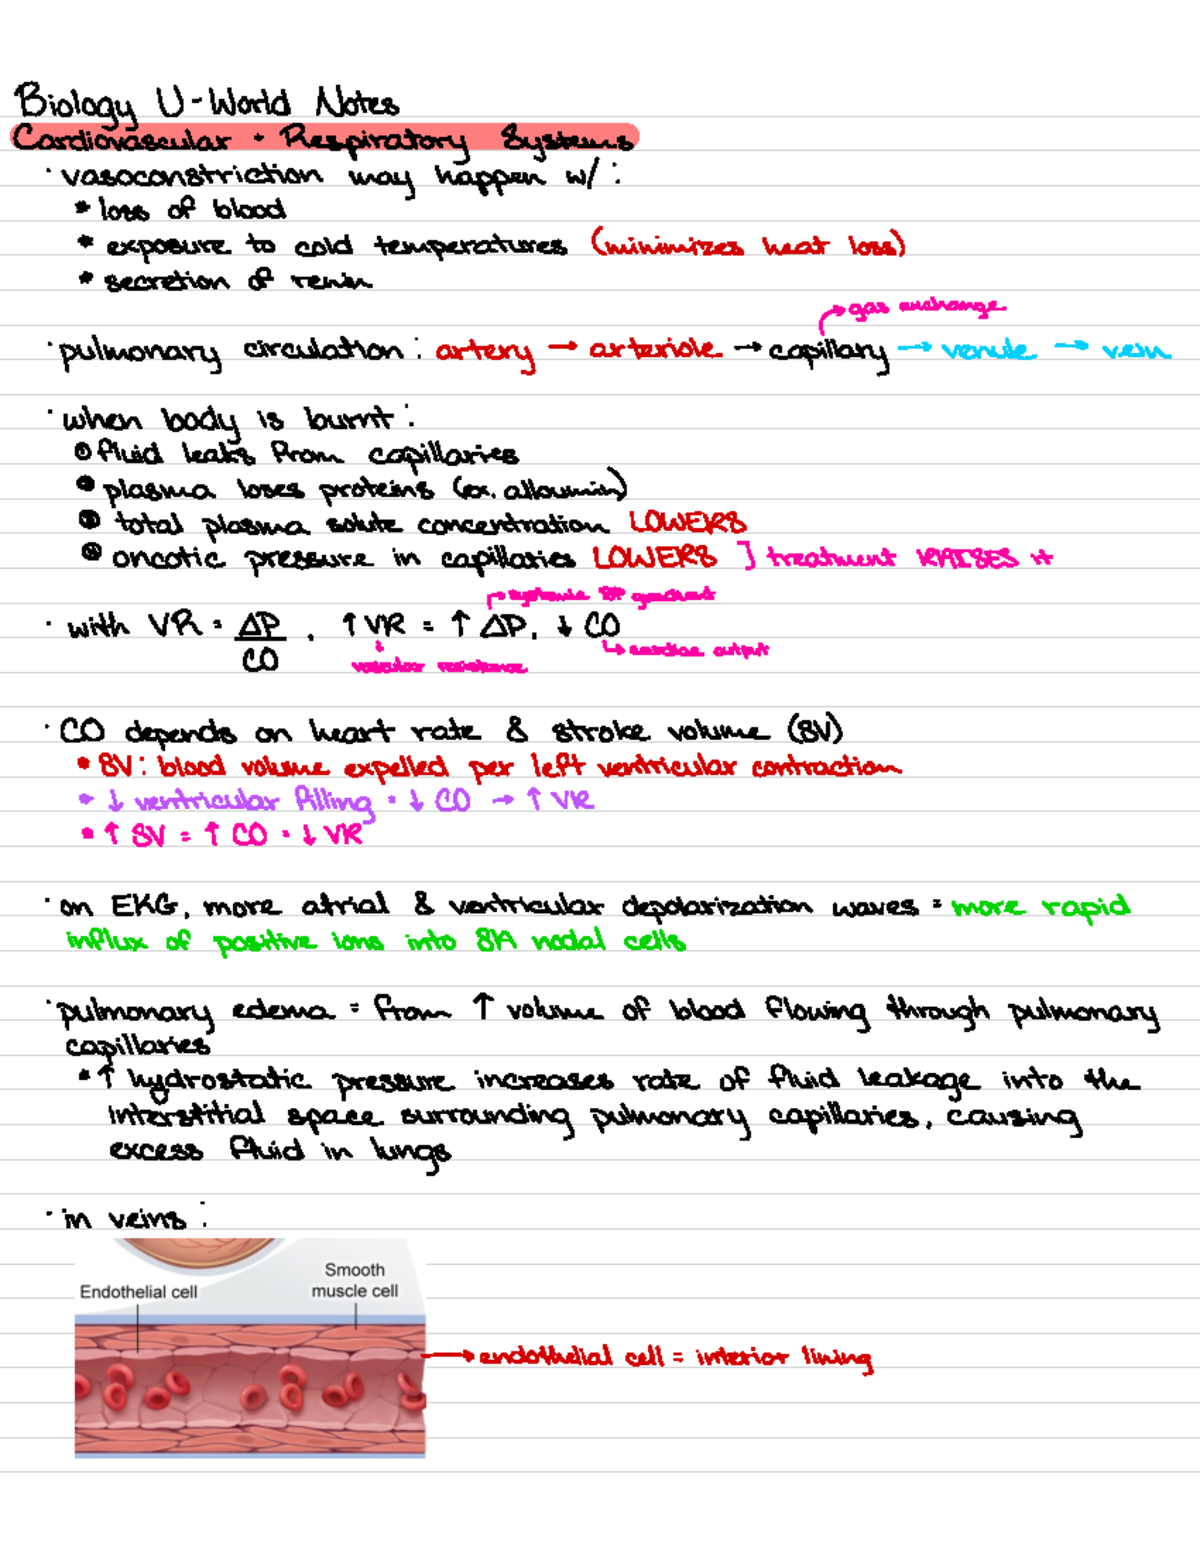 Biology U-World Notes
Cardiovascular + Respiratory Systems
· vasoconstriction may happen w/ :
* loss of blood
* exposure to cold temperatures (minimizes heat loss)
* secretion of renin
→ gas exchange
· pulmonary circulation : artery → arteriole → capillary → venule → vein
· when body is burnt :
① fluid leaks from capillaries
② plasma loses proteins (ex. albumin)
③ total plasma solute concentration LOWERS
④ oncotic pressure in capillaries LOWERS ] treatment RAISES it
→ systemic BP gradient
· with VR = ΔP/CO , ↑ VR = ↑ ΔP, ↓ CO
vascular resistance
↳ cardiac output
· CO depends on heart rate & stroke volume (SV)
* SV : blood volume expelled per left ventricular contraction
* ↓ ventricular filling = ↓ CO → ↑ VR
* ↑ SV = ↑ CO = ↓ VR
· on EKG, more atrial & ventricular depolarization waves = more rapid
influx of positive ions into SA nodal cells
· pulmonary edema = from ↑ volume of blood flowing through pulmonary
capillaries
* ↑ hydrostatic pressure increases rate of fluid leakage into the
interstitial space surrounding pulmonary capillaries, causing
excess fluid in lungs
· in veins :
Endothelial cell
Smooth
muscle cell
→ endothelial cell = interior lining